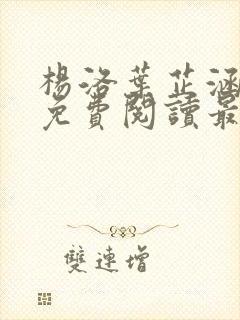 楊洛葉芷涵
免費閱讀最
雙連增